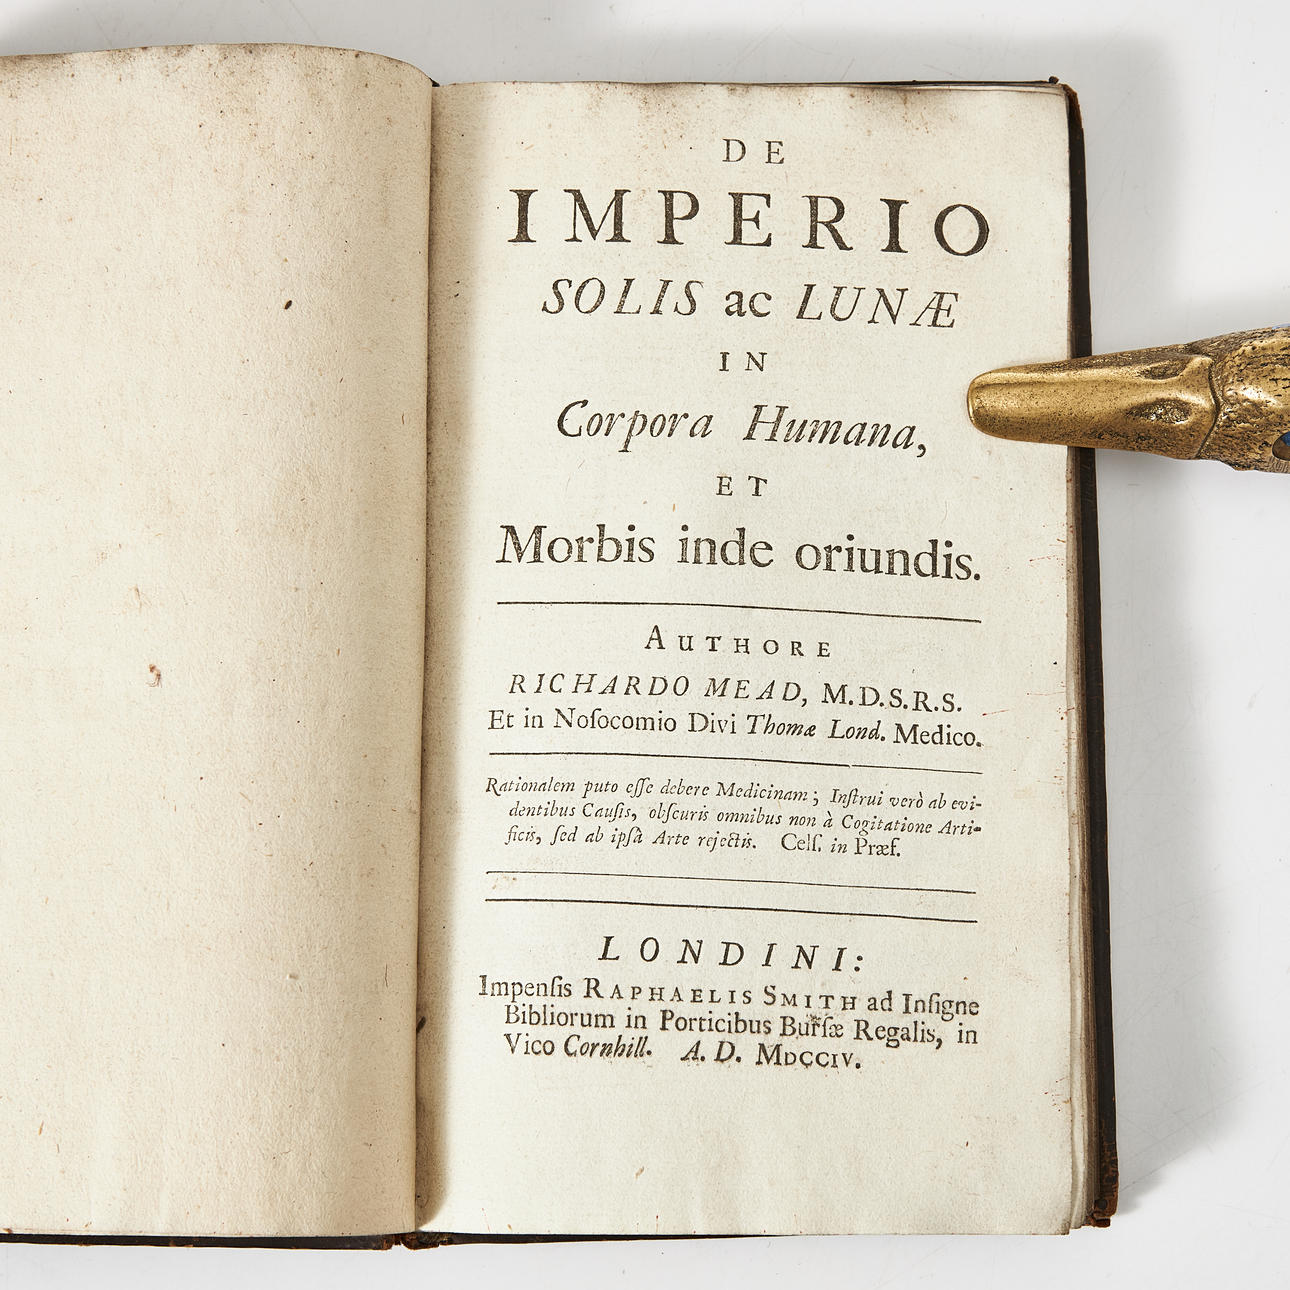 DE
IMPERIO
SOLIS ac LUNÆ
IN
Corpora Humana,
ET
Morbis inde oriundis.
AUTHORE
RICHARDO MEAD, M.D.S.R.S.
Et in Noſocomio Divi Thomæ Lond. Medico.
Rationalem puto eſſe debere Medicinam; Inſtrui verò ab evi-
dentibus Cauſis, obſcuris omnibus non à Cogitatione Arti-
ficis, ſed ab ipſâ Arte rejectis. Celſ. in Præf.
LONDINI:
Impenſis RAPHAELIS SMITH ad Inſigne
Bibliorum in Porticibus Burſæ Regalis, in
Vico Cornhill. A. D. MDCCIV.